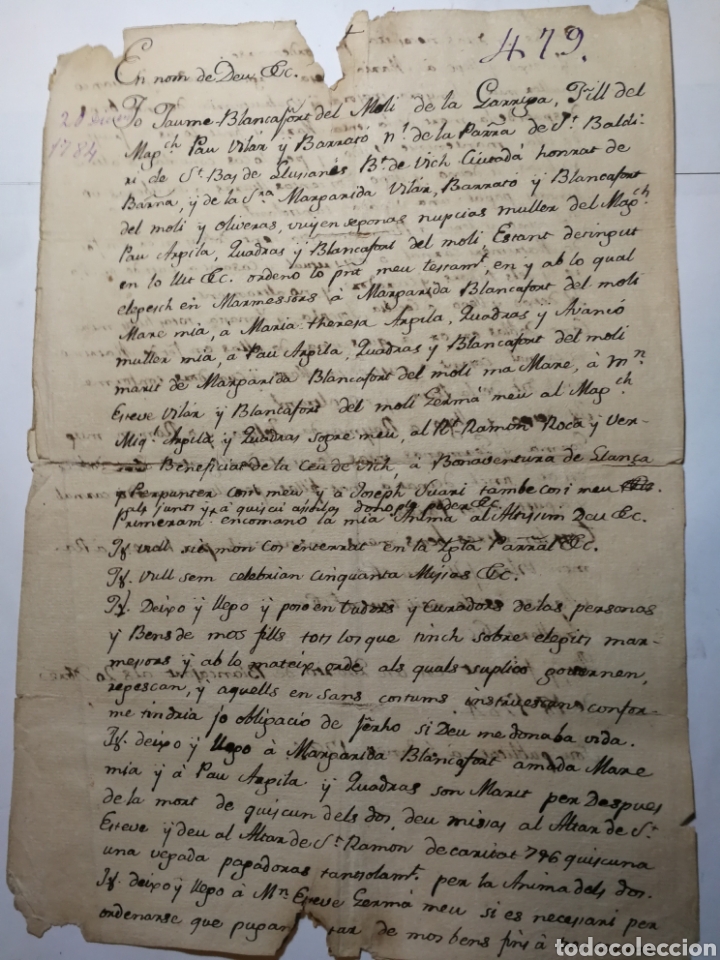 479.
En nom de Deu, &c.
20
1784
Jo Jaume Blancafort del Moli de la Garriga, Fill del
Magch Pau Vilár y Barrató nl de la Parrña de St Baldi-
ri de St Boy de Llusianés Bt de Vich Ciutadá honrat de
Barna, y de la Sra Margarida Vilár, Barrató y Blancafort
del moli y Oliveras, vuy en segonas nupcias muller del Magch
Pau Argila, Quadras y Blancafort del moli, Estant detingut
en lo llit &c. ordeno lo pnt meu testamt, en y ab lo qual
elegesch en Marmessors à Margarida Blancafort del moli
Mare mia, à Maria Theresa Argila, Quadras y Avanció
muller mia, à Pau Argila, Quadras y Blancafort del moli
marit de Margarida Blancafort del moli ma Mare, à Mn
Esteve Vilár y Blancafort del moli Germá meu al Magch
Miql Argila y Quadras sogre meu, al Rt Ramon Roca y Ver-
Beneficiat de la Ceu de Vich, à Bonaventura de Llança
y Perpanter cosi meu y à Joseph Suari tambe cosi meu
als junts y à quiscú assoles dono lo poder &c.
Primeramt. encomano la mia Anima al Altissim Deu &c.
It. vull sie mon cos enterrat en la Igla Parrãl &c.
It. vull sem celebrian cinquanta Missas &c.
It. Deixo y llego y poso en tudors y curadors de las personas
y Bens de mos fills tots los que tinch sobre elegits mar-
mesors y ab lo mateix orde als quals suplico governen,
regescan, y aquells en sans costums instruescan confor-
me tindria jo obligacio de ferho si Deu me donaba vida.
It. deixo y llego à Margarida Blancafort amada Mare
mia y à Pau Argila y Quadras son Marit per Despues
de la mort de quiscun dels dos, deu missas al Altar de St
Esteve y deu al Altar de St. Ramon de caritat 7 quiscuna
una vegada pagadoras tansolamt. per la Anima dels dos.
It. deixo y llego à Mn Esteve Germá meu si es necessari per
ordenarse que pugan de mos bens fins à
todocoleccion.net